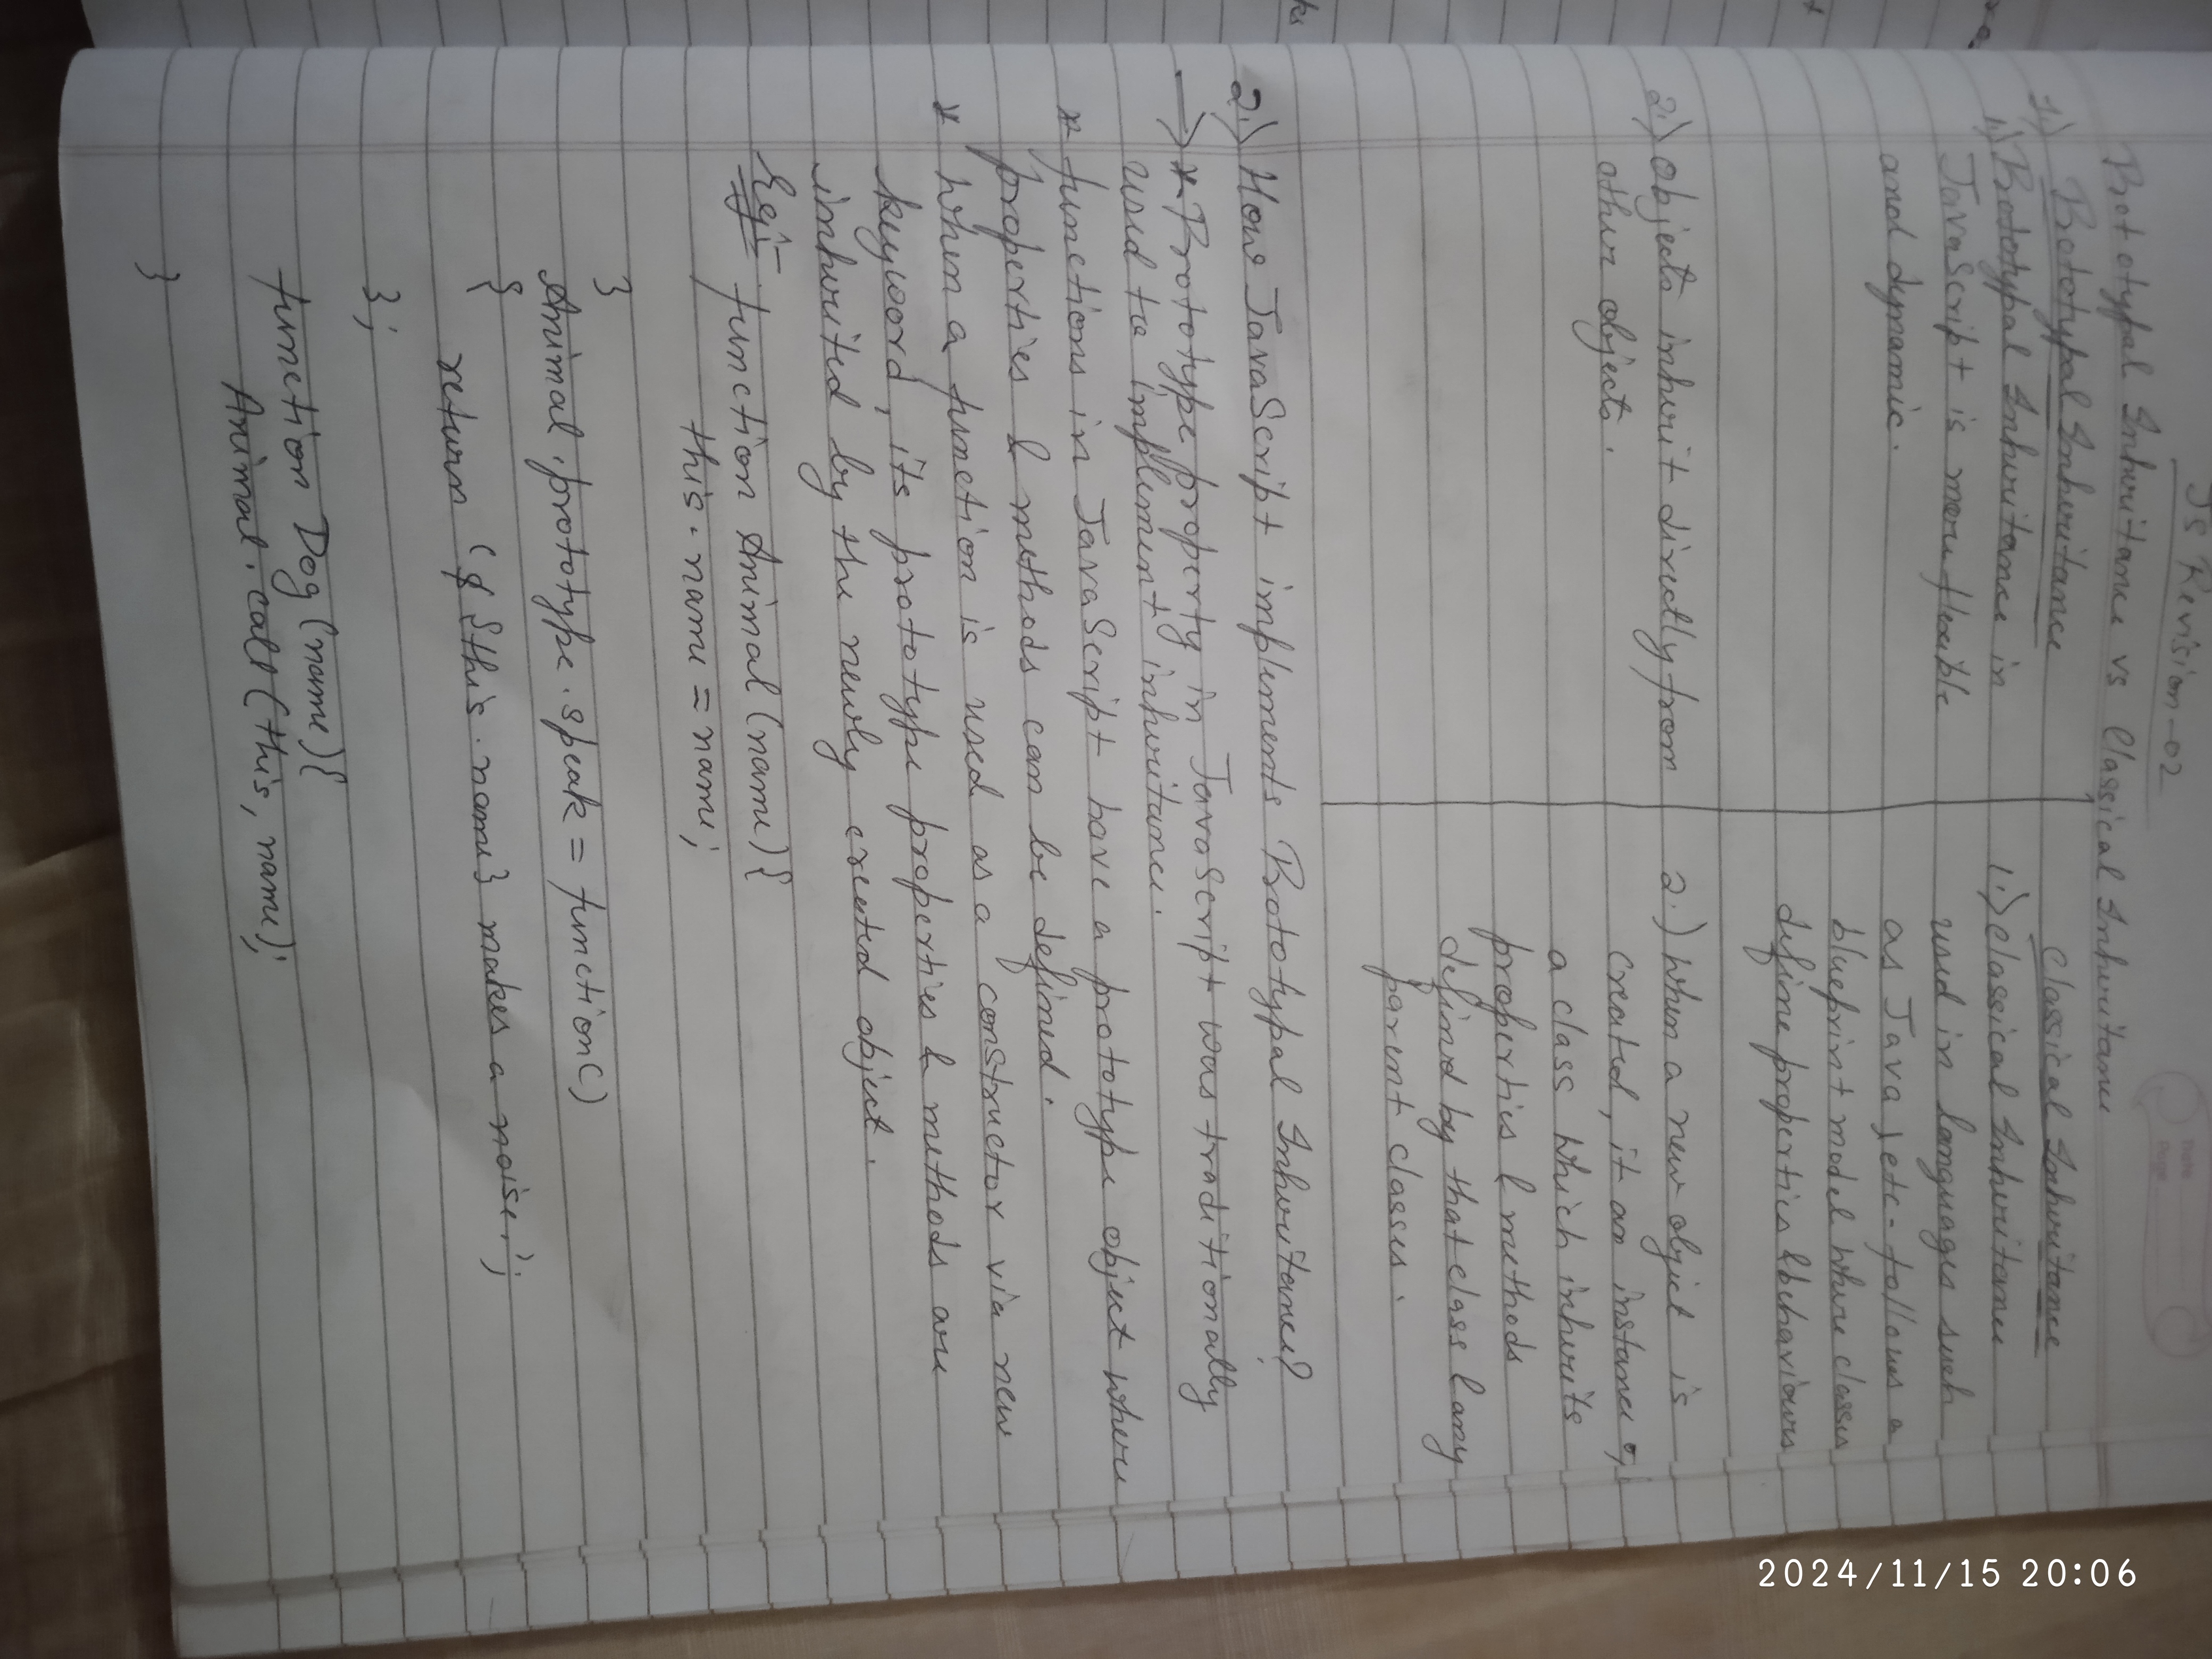 JS Revision-02
Prototypal Inheritance vs Classical Inheritance
1.) Prototypal Inheritance
Classical Inheritance
1.) Prototypal Inheritance in
JavaScript is more flexible
and dynamic.
1.) Classical Inheritance
used in languages such
as Java, etc- follows a
blueprint model where classes
define properties & behaviours
2.) objects inherit directly from
other objects.
2.) when a new object is
created, it an instance of
a class which inherits
properties & methods
defined by that class & any
parent classes.
2.) How JavaScript implements Prototypal Inheritance?
→ * Prototype property in JavaScript was traditionally
used to implement inheritance.
* functions in JavaScript have a prototype object where
properties & methods can be defined.
* when a function is used as a constructor via new
keyword, its prototype properties & methods are
inherited by the newly created object.
Eg:- function Animal(name){
this.name = name;
}
Animal.prototype.speak = function()
{
return (`${this.name} makes a noise.`);
};
function Dog(name){
Animal.call(this, name);
}
Date
Page
2024/11/15 20:06